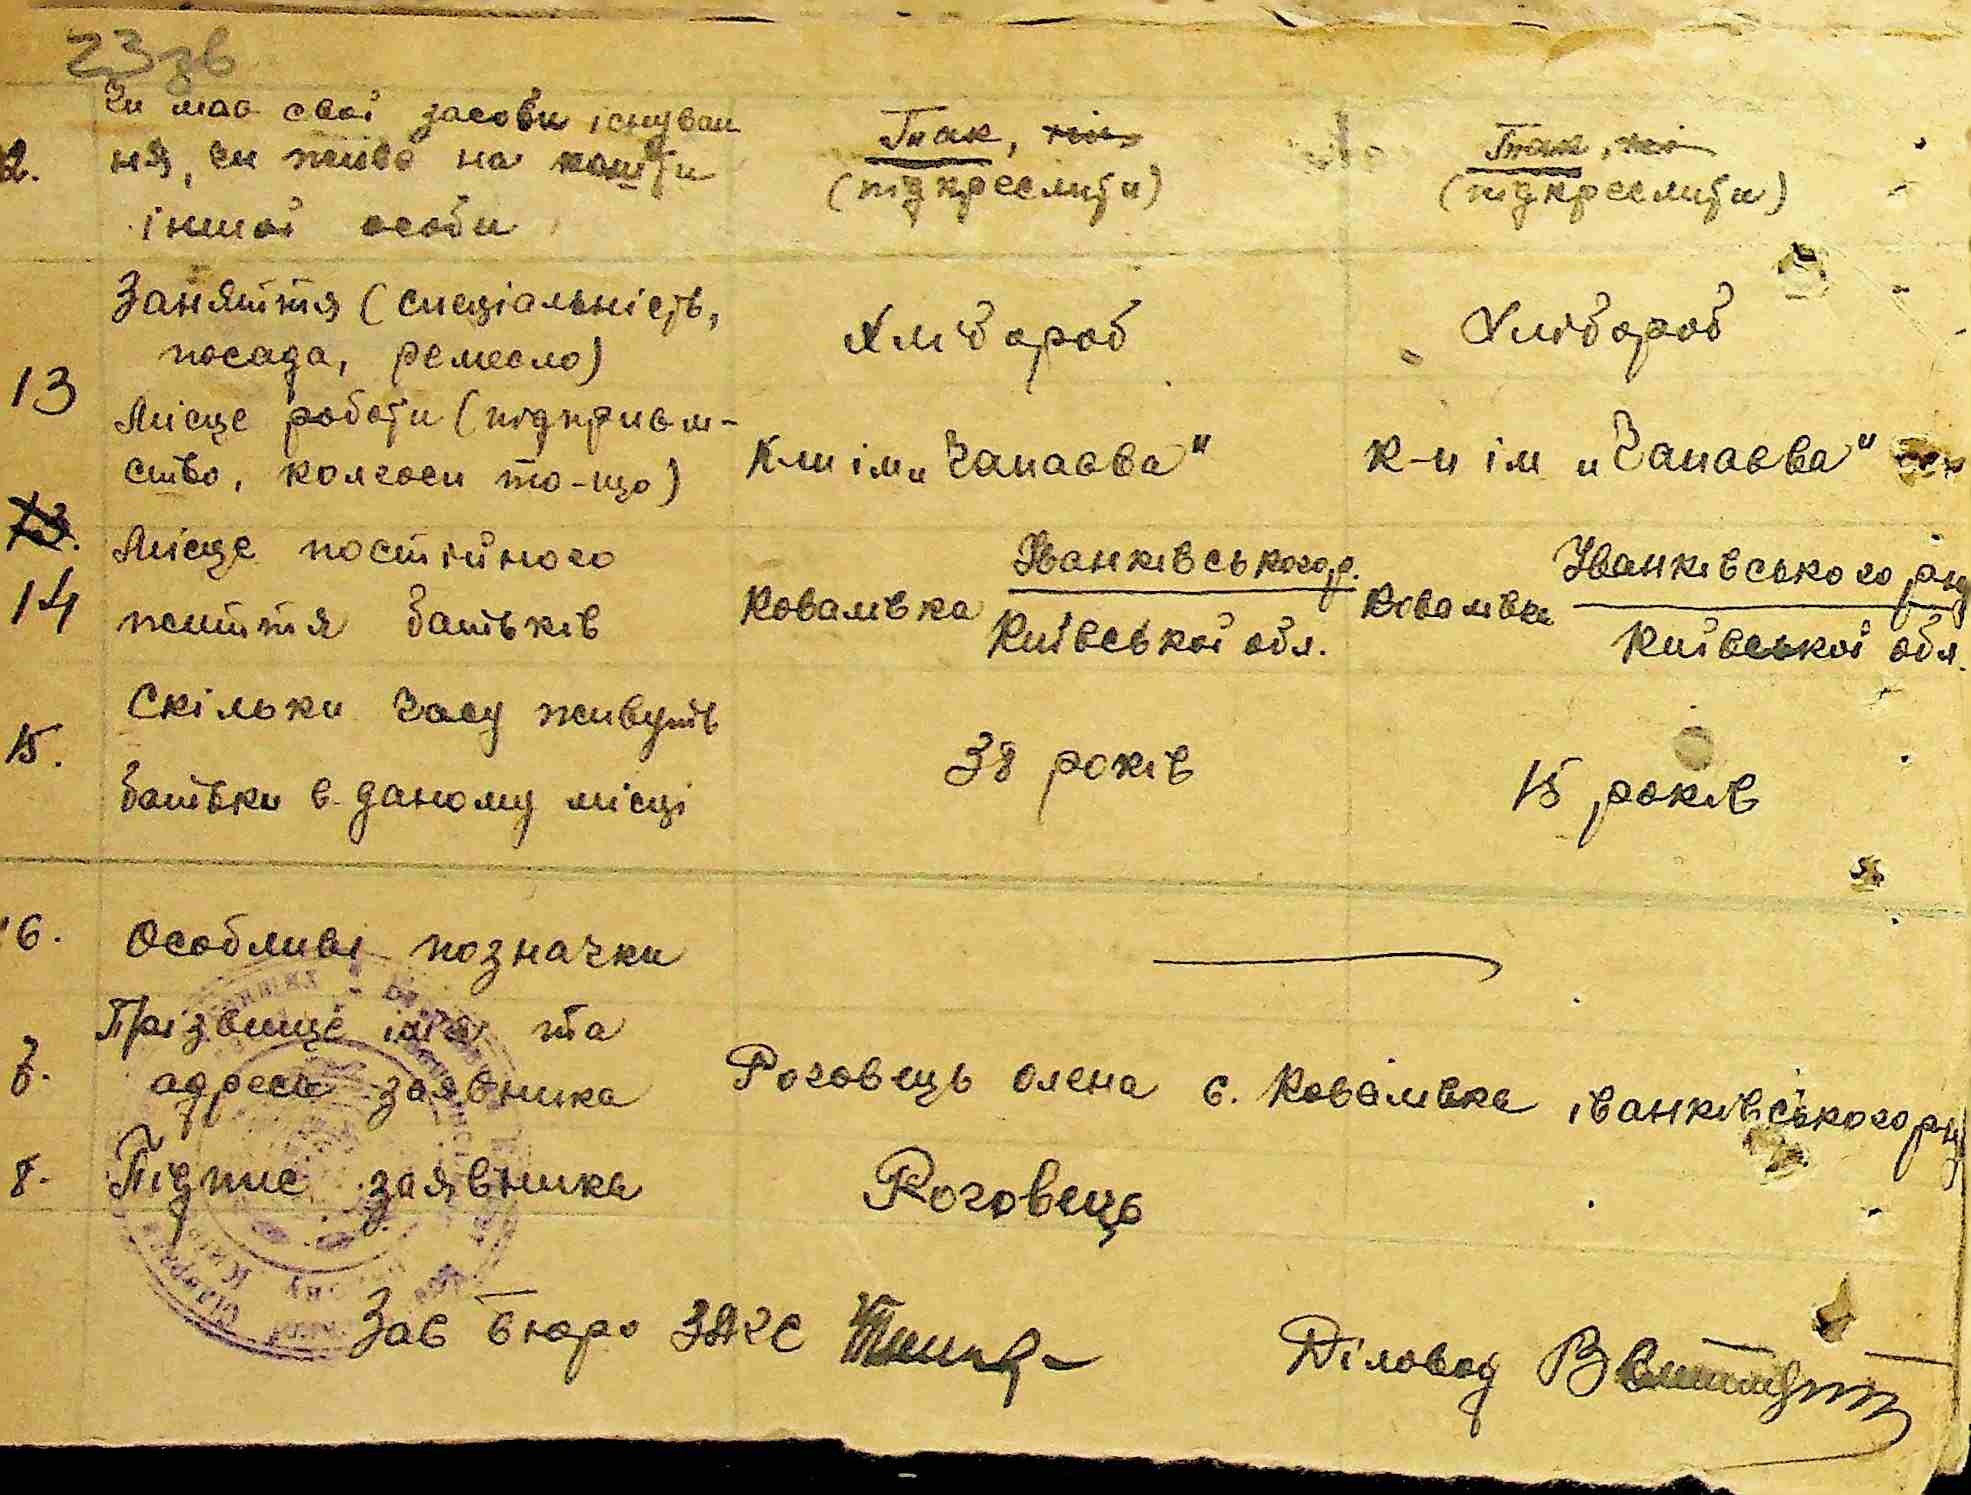 23 зв
Чи має свої засоби існуван
12. ня, чи живе на кошти
іншої особи
Так, ні
(підкреслити)
Так, ні
(підкреслити)
13 Заняття (спеціальність,
посада, ремесло)
Хлібороб
Хлібороб
Місце роботи (підприєм-
ство, колгосп то-що)
К-п ім „Чапаєва"
К-п ім „Чапаєва"
13.
14 Місце постійного
життя батьків
Ковалівка Іванківського р.
Київської обл.
Ковалівка Іванківського рну
Київської обл.
15. Скільки часу живуть
батьки в даному місці
38 років
15 років
16. Особливі позначки
7. Прізвище ім'я та
адреса заявника
Роговець Олена с. Ковалівка іванківського рну
8. Підпис заявника
Роговець
Зав бюро ЗАГС
Діловод